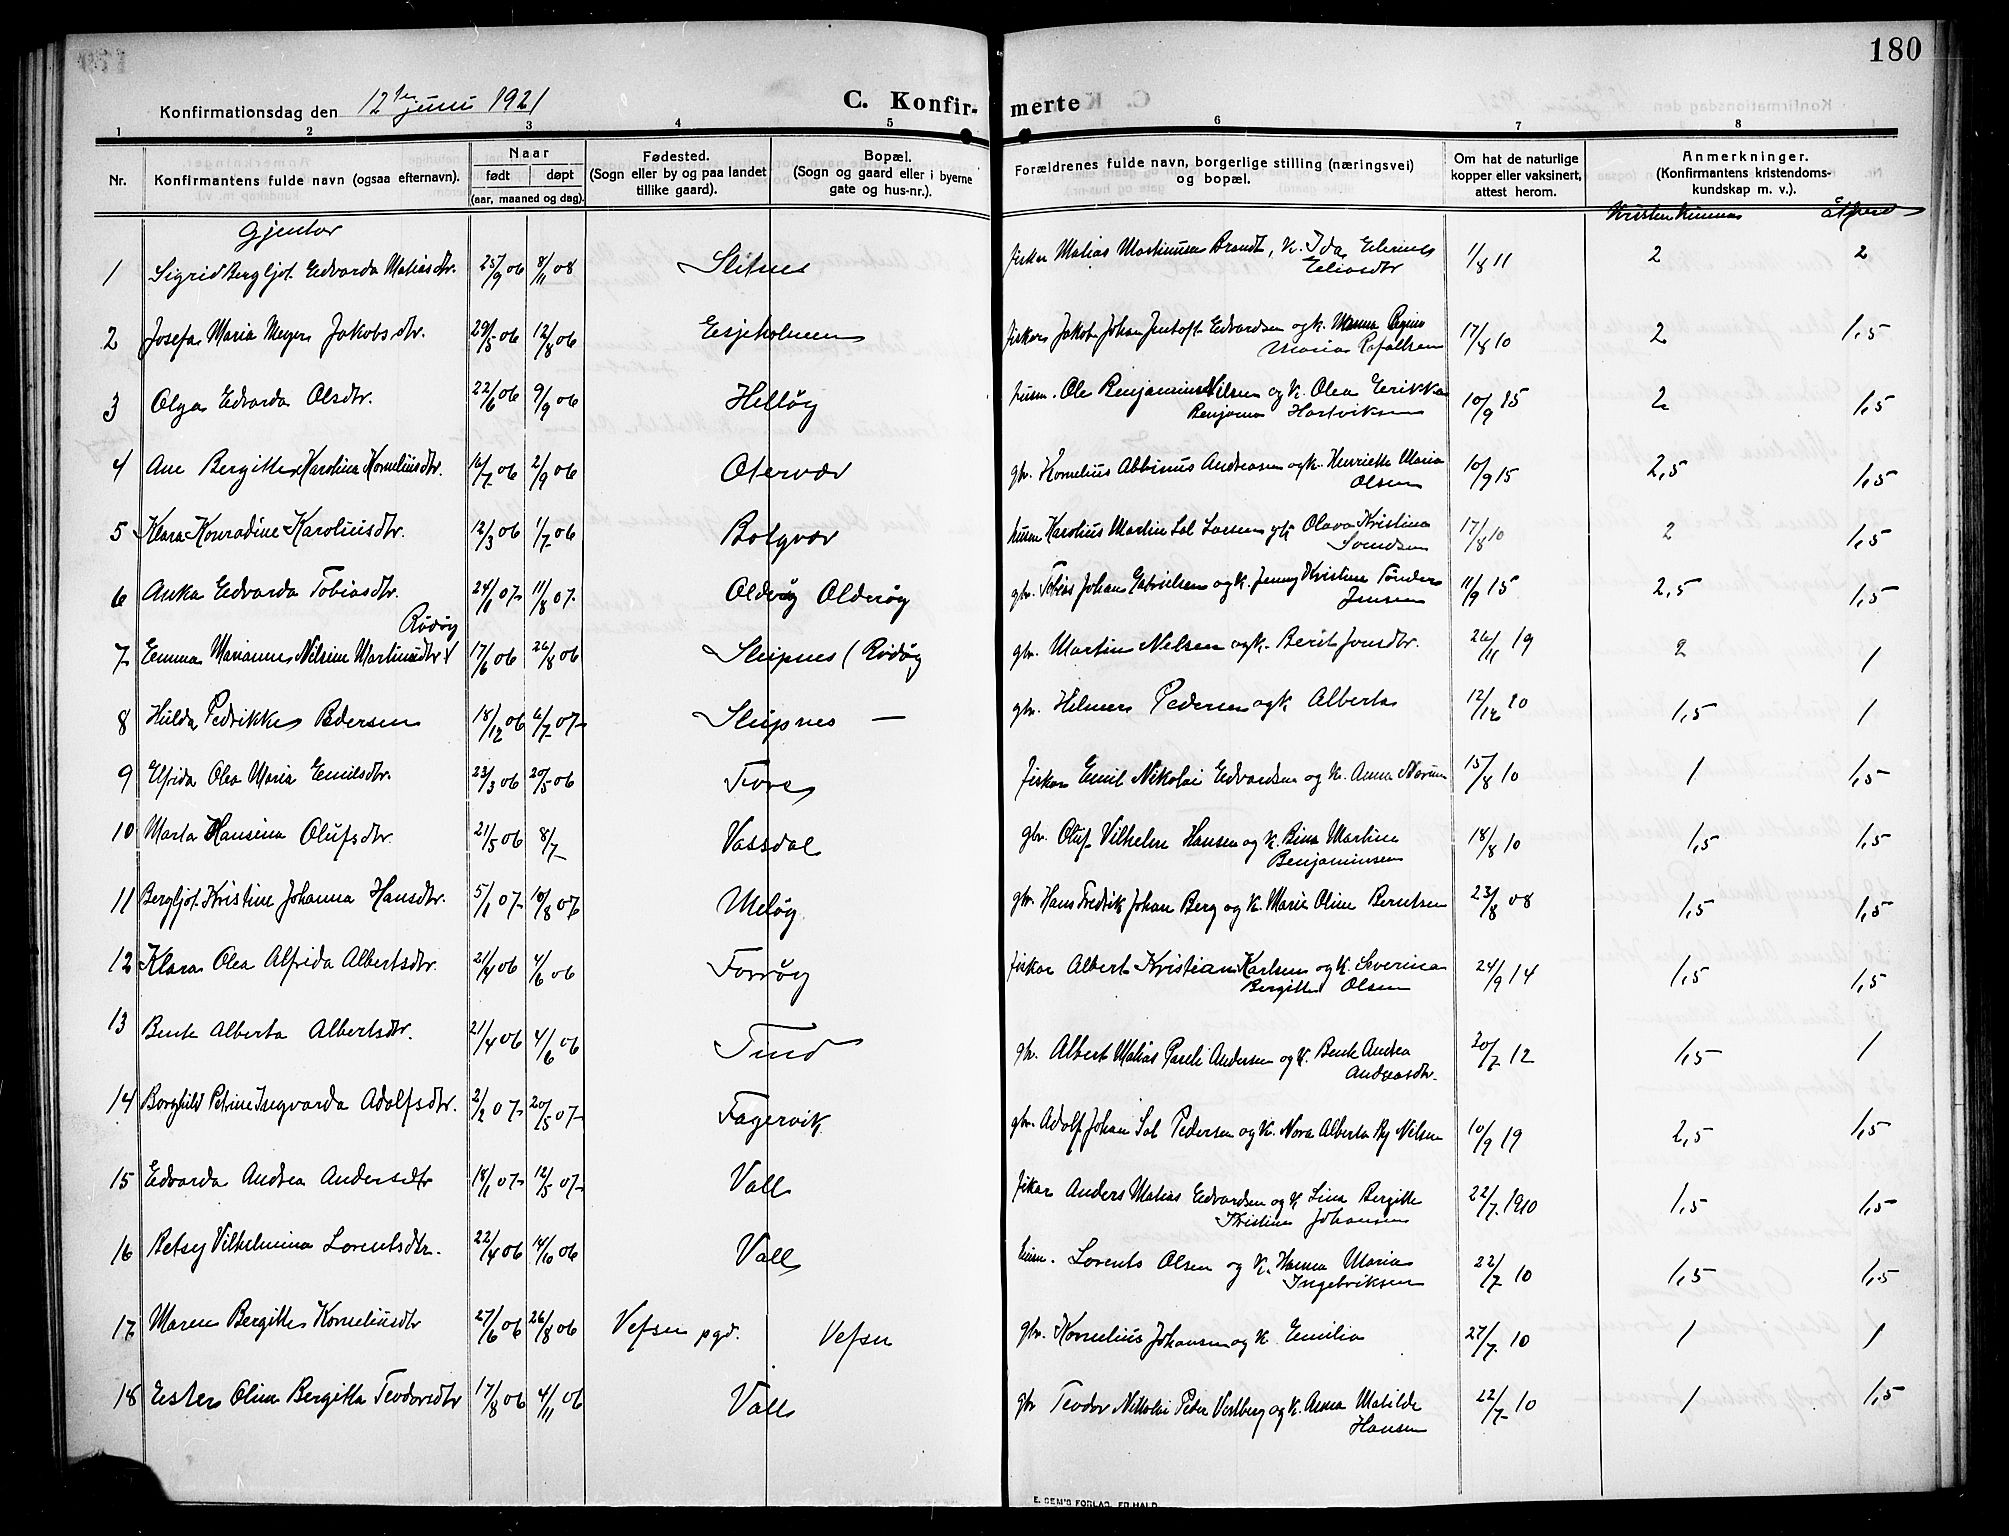 180
Konfirmationsdag den 12te juni 1921
C. Konfir-
merte
1 2 3 4 5 6 7 8
Nr.
Konfirmantens fulde navn (ogsaa efternavn).
Naar
født døpt
(aar, maaned og dag).
Fødested.
(Sogn eller by og paa landet
tillike gaard).
Bopæl.
(Sogn og gaard eller i byerne
gate og hus-nr.).
Forældrenes fulde navn, borgerlige stilling (næringsvei)
og bopæl.
Om hat de naturlige
kopper eller vaksinert,
attest herom.
Anmerkninger.
(Konfirmantens kristendoms-
kundskap m. v.).
Gjentor
1 Sigrid Bergljot Edvarda Matiasdtr. 25/9 06 8/11 08 Slitnes fisker Matias Martinusen Brandt, k. Ida 1/8 11 2 2
Eliasdtr
2 Josefa Maria Meyer Jakobsdtr. 29/5 06 12/8 06 Esjeholmen fisker Jakob Johan Jentoft Edvardsen og k. 17/8 10 2 1,5
3 Olga Edvarda Olsdtr. 22/6 06 9/9 06 Helløy husm. Ole Benjamin Nilsen og k. Olea Erikka 10/9 15 2 1,5
Hartviksen
4 Ane Bergitte Karolina Korneliusdtr. 16/7 06 2/9 06 Otervær gbr. Kornelius Albinus Andreasen og k. Henriette Maria 10/9 15 2,5 1,5
Olsen
5 Klara Konradine Karoliusdtr. 12/3 06 1/7 06 Bolgvær husm Karolius Martin Sol Larsen og k Olava Kristina 17/8 10 2 1,5
Svendsen
6 Anka Edvarda Tobiasdtr. 24/1 07 11/8 07 Oldrøy Oldrøy gbr. Tobias Johan Gabrielsen og k. Jenny Kristine Tønder 11/9 15 2,5 1,5
Jensen
Rødøy
7 Emma Marianne Nilsine Martinsdtr 17/6 06 26/8 06 Sleipnes (Rødøy gbr. Martin Nilsen og k. Berit Jonsdtr. 26/11 19 2 1
8 Hulda Fedrikke Pedersen 18/12 06 6/7 07 Sleipnes — gbr. Helmer Pedersen og k Alberta 12/12 10 1,5 1
9 Elfrida Olea Maria Emilsdtr. 23/3 06 20/5 06 Fore fisker Emil Nikolai Edvardsen og k. Anna 15/8 10 1 1,5
10 Marta Hansina Olufsdtr. 21/5 06 8/7 Vassdal gbr. Oluf Vilhelm Hansen og k. Bina Martine 18/8 10 1,5 1,5
Benjaminsen
11 Bergljot Kristine Johanna Hansdtr. 5/1 07 10/8 07 Meløy gbr. Hans Fredrik Johan Berg og k. Marie Oline Berntsen 23/8 08 1,5 1,5
12 Klara Olea Alfrida Albertsdtr. 21/4 06 4/6 06 Forrøy fisker Albert Kristian Karlsen og k. Severina 24/9 14 1,5 1,5
Bergitte Olsen
13 Bente Alberta Albertsdtr. 21/4 06 4/6 06 Tind gbr. Albert Matias Pareli Andersen og k. Bente Andrea 20/7 12 1,5 1
Andreasdtr.
14 Borghild Petrine Ingvarda Adolfsdtr. 2/2 07 20/5 07 Fagervik gbr. Adolf Johan Sol Pedersen og k. Nora Alberta Nilsen 10/9 19 2,5 1,5
15 Edvarda Andrea Andersdtr 18/1 07 12/5 07 Vall fisker Anders Matias Edvardsen og k Lina Bergitte 22/7. 1910 1,5 1,5
Kristine Johansen
16 Betsy Vilhelmina Lorentsdtr. 22/4 06 14/10 06 Vall Lorents Olsen og k. Hanna Maria 22/7 10 1,5 1,5
Ingebriksen
17 Maren Bergitte Korneliusdtr 27/6 06 26/8 06 Vefsn pgd. Vefsn gbr. Kornelius Johansen og k. Emilia 27/7. 10 1 1
18 Ester Oline Bergitta Teodorsdtr 17/8 06 4/11 06 Vall gbr Teodor Nikolai Peder Vestberg og k. Anna Matilde 22/7 10 1 1,5
Hansen